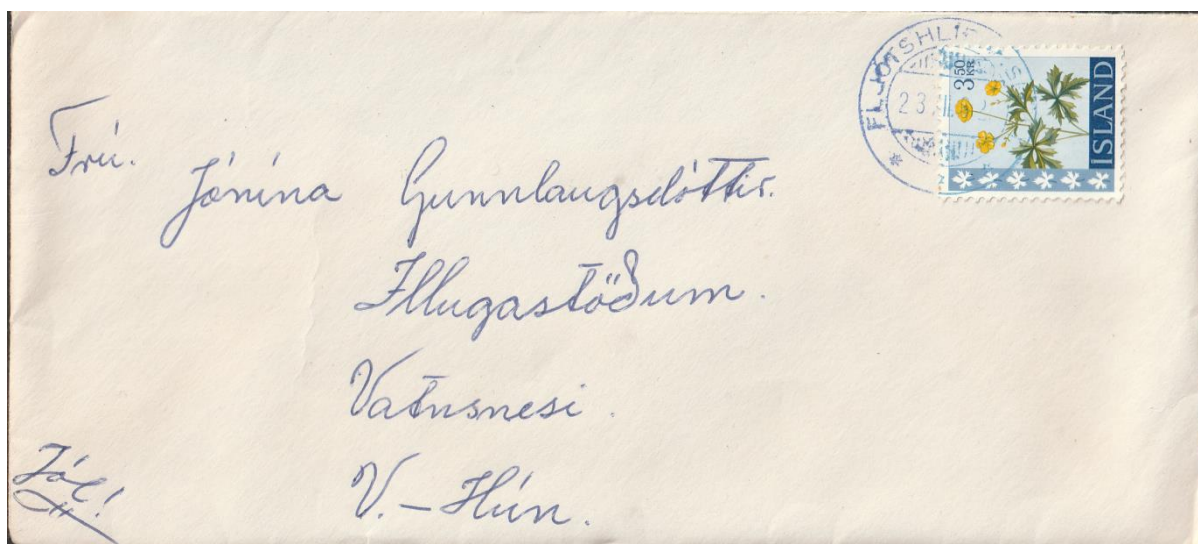 FLJÓTSHLÍ
23
3 50 KR
ÍSLAND
Frú.
Jónína Gunnlaugsdóttir.
Illugastöðum.
Vatnsnesi.
V.-Hún.
Jól!